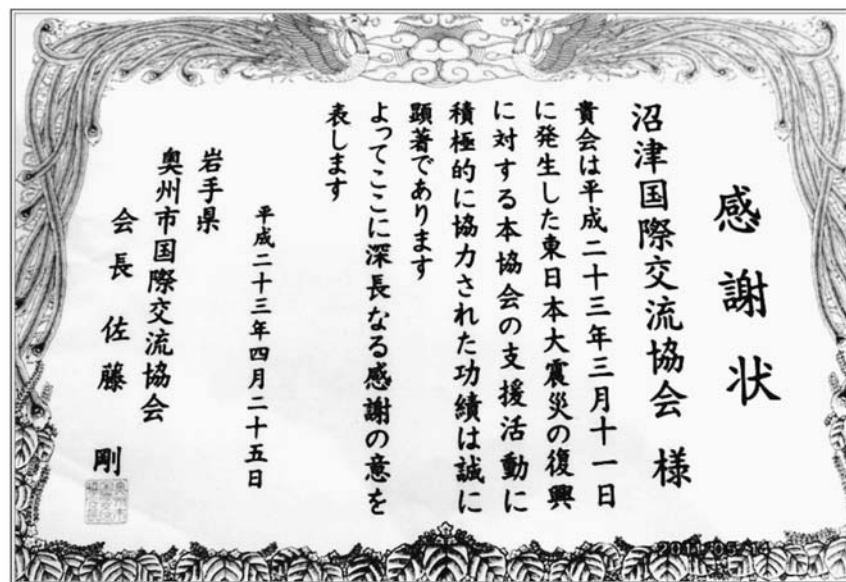 感謝状
沼津国際交流協会 様
貴会は平成二十三年三月十一日
に発生した東日本大震災の復興
に対する本協会の支援活動に
積極的に協力された功績は誠に
顕著であります
よってここに深長なる感謝の意を
表します
平成二十三年四月二十五日
岩手県
奥州市国際交流協会
会長 佐藤 剛
2011/05/14